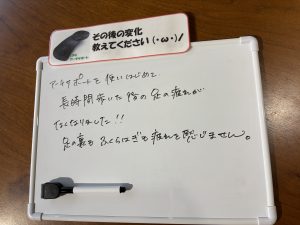 その後の変化
教えてください(･ω･)!
アーチサポートを使いはじめて
長時間歩いた後の足の疲れが
なくなりました!!
足の裏もふくらはぎも疲れを感じません。